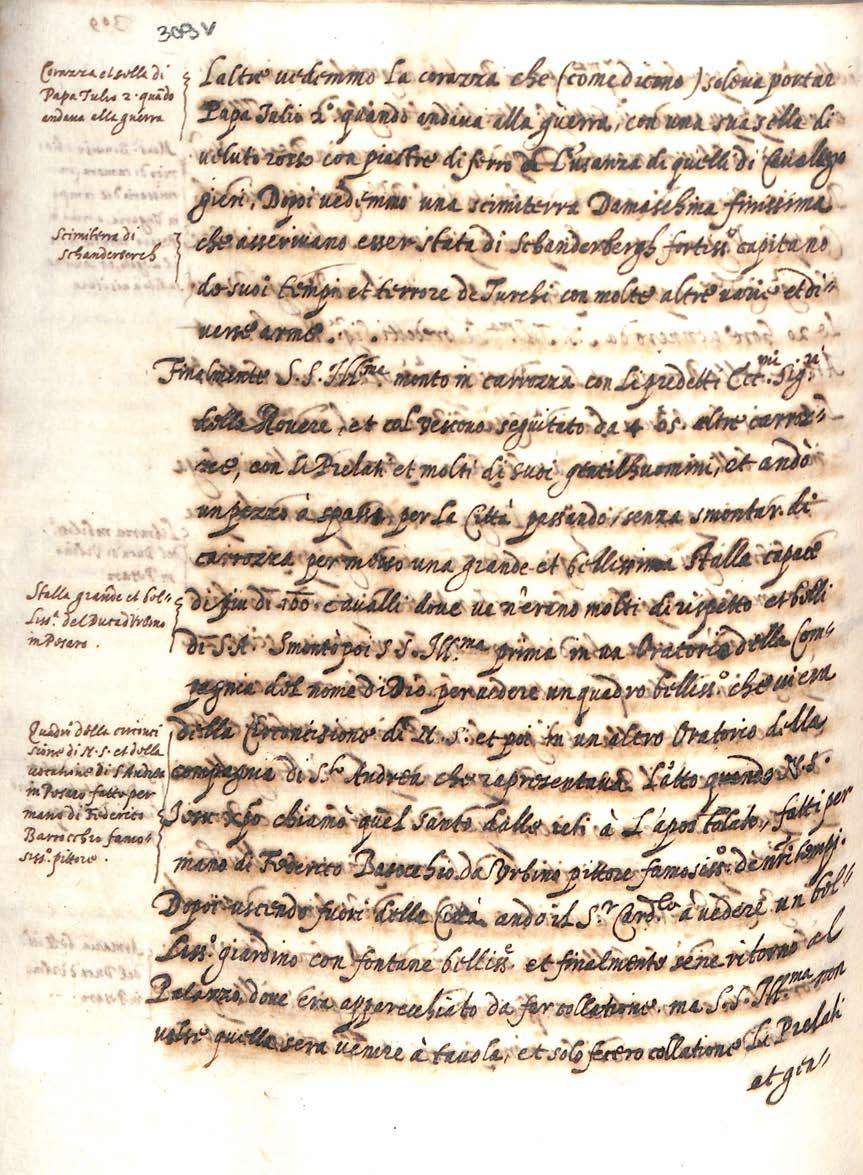 309v
Corazza et sella di
Papa Julio 2. quãdo
andava alla guerra
L'altre vedemmo la corazza che (come dicono) soleva portar
Papa Julio 2.º quando andava alla guerra, con una sua sella di
veluto rosso con piastre di ferro à l'usanza di quelli di Cavalleg
gieri, Dopoi vedemmo una scimiterra Damaschina finissima
Scimiterra di
Schanderberch
che asserivano esser stata di Schanderbergh fortiss.º capitano
de suoi tempi et terrore de Turchi con molte altre varie et di=
verse arme.
Finalmente S. S. Ill.ma montò in carrozza con li predetti Ecc.mi Sig.ri
della Rovere, et col Vescovo seguitato da 4 ò 5. altre carroz=
ze, con li Prelati et molti di suoi gentilhuomini, et andò
un pezzo à spasso per la Città passando, senza smontar di
carrozza per mezzo una grande et bellissima stalla capace
Stalla grande et bel=
liss.a del Duca d'Urbino
in Pesaro.
di piu di 100. cavalli dove ve n'erano molti di rispetto et belli
di S. A. Smontò poi S. S. Ill.ma prima in un Oratorio della Com=
pagnia del nome di Dio per vedere un quadro belliss.º che vi era
Quadri della circonci
sione di N. S. et della
vocatione di S. Andrea
in Pesaro fatto per
mano di Federico
Barocchio famo=
siss.º pittore.
della Circoncisione di N. S. et poi in un altro Oratorio della
compagnia di S.to Andrea che rapresentava l'atto quando N. S.
Jesu Xpo chiamò quel santo dalle reti à l'apostolato, fatti per
mano di Federico Barocchio da Urbino pittore famosiss.º de nri tempi.
Dopoi uscendo fuori della Città andò il S.r Card.le à vedere un bel=
liss.º giardino con fontane belliss.e et finalmente sene ritornò al
Palazzo, dove era apparecchiato da far collatione, ma S. S. Ill.ma non
volse quella sera venire à tavola, et solo fecero collatione li Prelati
et gen=